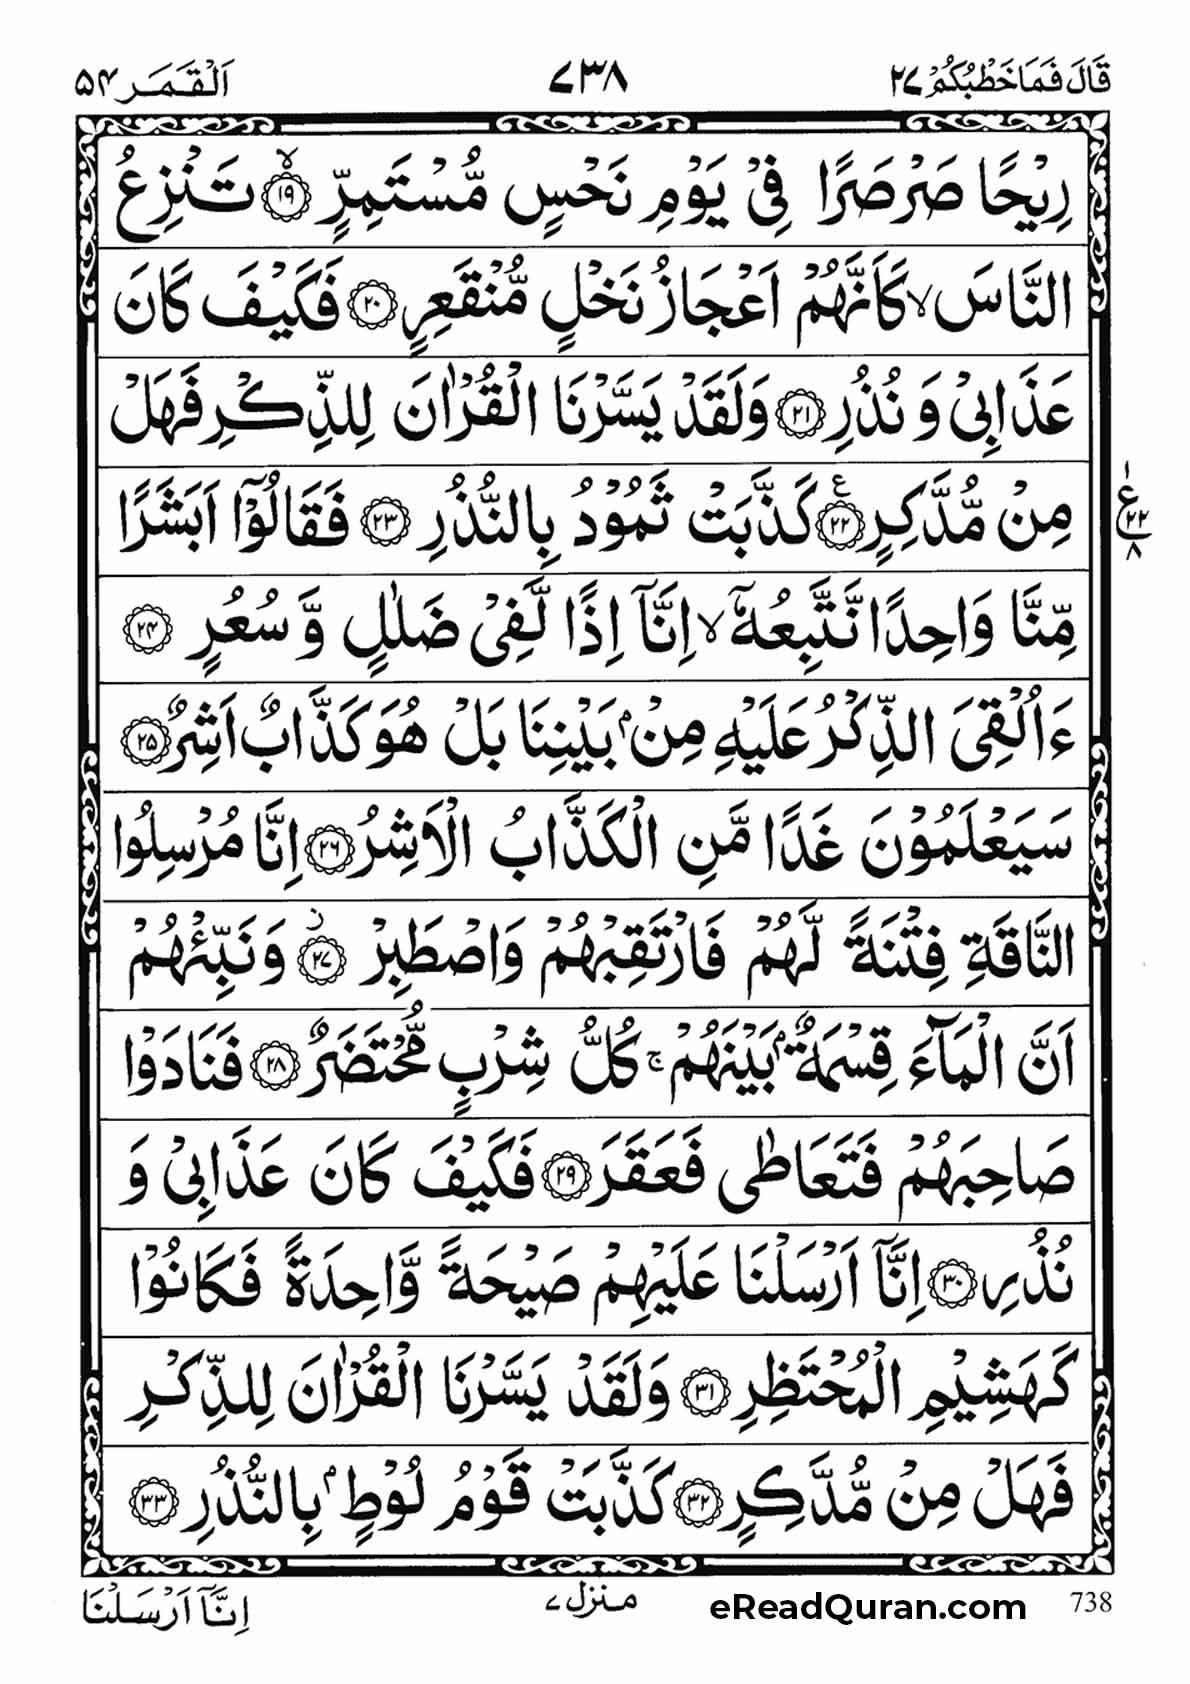 قَالَ فَمَا خَطْبُكُمْ ۲۷ ۷۳۸ اَلْقَمَر ۵۴
رِيْحًا صَرْصَرًا فِيْ يَوْمِ نَحْسٍ مُّسْتَمِرٍّ ۙ‏﴿۱۹﴾ تَنْزِعُ
النَّاسَ ۙ كَاَنَّهُمْ اَعْجَازُ نَخْلٍ مُّنْقَعِرٍ ﴿۲۰﴾ فَكَيْفَ كَانَ
عَذَابِيْ وَ نُذُرِ ﴿۲۱﴾ وَلَقَدْ يَسَّرْنَا الْقُرْاٰنَ لِلذِّكْرِ فَهَلْ
مِنْ مُّدَّكِرٍ ﴿۲۲﴾ ع كَذَّبَتْ ثَمُوْدُ بِالنُّذُرِ ﴿۲۳﴾ فَقَالُوْۤا اَبَشَرًا
۱ ع ۲۲ ۸
مِّنَّا وَاحِدًا نَّتَّبِعُهٗۤ ۙ اِنَّاۤ اِذًا لَّفِيْ ضَلٰلٍ وَّ سُعُرٍ ﴿۲۴﴾
ءَاُلْقِيَ الذِّكْرُ عَلَيْهِ مِنْۢ بَيْنِنَا بَلْ هُوَ كَذَّابٌ اَشِرٌ ﴿۲۵﴾
سَيَعْلَمُوْنَ غَدًا مَّنِ الْكَذَّابُ الْاَشِرُ ﴿۲۶﴾ اِنَّا مُرْسِلُوا
النَّاقَةِ فِتْنَةً لَّهُمْ فَارْتَقِبْهُمْ وَاصْطَبِرْ ز ﴿۲۷﴾ وَنَبِّئْهُمْ
اَنَّ الْمَآءَ قِسْمَةٌۢ بَيْنَهُمْ ۚ كُلُّ شِرْبٍ مُّحْتَضَرٌ ﴿۲۸﴾ فَنَادَوْا
صَاحِبَهُمْ فَتَعَاطٰى فَعَقَرَ ﴿۲۹﴾ فَكَيْفَ كَانَ عَذَابِيْ وَ
نُذُرِ ﴿۳۰﴾ اِنَّاۤ اَرْسَلْنَا عَلَيْهِمْ صَيْحَةً وَّاحِدَةً فَكَانُوْا
كَهَشِيْمِ الْمُحْتَظِرِ ﴿۳۱﴾ وَلَقَدْ يَسَّرْنَا الْقُرْاٰنَ لِلذِّكْرِ
فَهَلْ مِنْ مُّدَّكِرٍ ﴿۳۲﴾ كَذَّبَتْ قَوْمُ لُوْطٍۭ بِالنُّذُرِ ﴿۳۳﴾
738 eReadQuran.com منزل ۷ اِنَّاۤ اَرْسَلْنَا